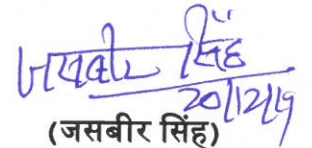 जसबीर सिंह
20/12/19
(जसबीर सिंह)